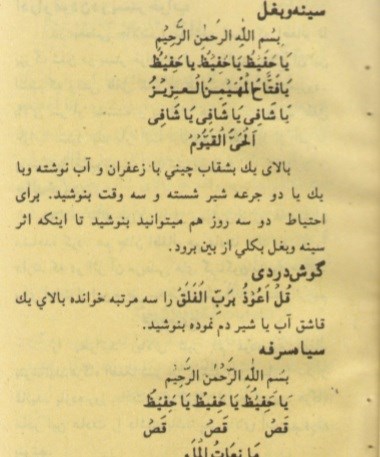 سینه و بغل
بِسْمِ اللَّهِ الرَّحْمٰنِ الرَّحِیْمِ
یَا حَفِیْظُ یَا حَفِیْظُ یا حَفِیْظُ
یَافَتَّاحُ الْمُهَیْمِنُ الْعَزِیْزُ
یَا شَافِی یَا شَافِی یَا شَافِی
اَلْحَیُّ الْقَیُّوْمُ
بالای یك بشقاب چیني با زعفران و آب نوشته وبا
یك یا دو جرعه شیر شسته و سه وقت بنوشید. برای
احتیاط دو سه روز هم میتوانید بنوشید تا اینکه اثر
سینه وبغل بکلي از بین برود.
گوش دردی
قُلْ اَعُوْذُ بِرَبِّ الْفَلَقْ را سه مرتبه خوانده بالاي یك
قاشق آب یا شیر دم نموده بنوشید.
سیاسرفه
بِسْمِ اللَّهِ الرَّحْمٰنِ الرَّحِیْمِ
یَا حَفِیْظُ یَا حَفِیْظُ یَا حَفِیْظُ
قَصُ قَصُ قَصُ